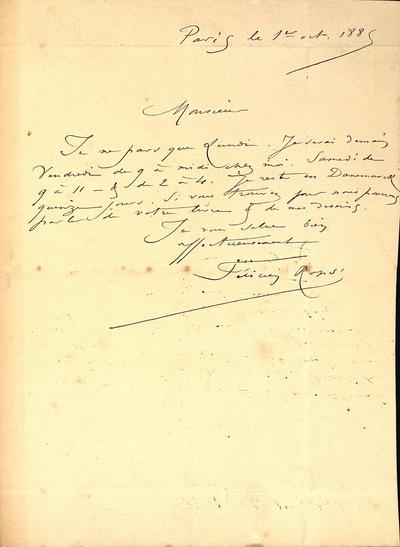 Paris le 1er oct. 1885
Monsieur
Je ne pars que Lundi. Je serai demain
Vendredi de 9 à midi chez moi. Samedi de
9 à 11 – & de 2 à 4. Je reste en Danemarck
quinze jours. Si vous trouvez jour nous pourrons
parler de votre livre & de mes dessins
Je vous salue bien
affectueusement
Félicien Rops